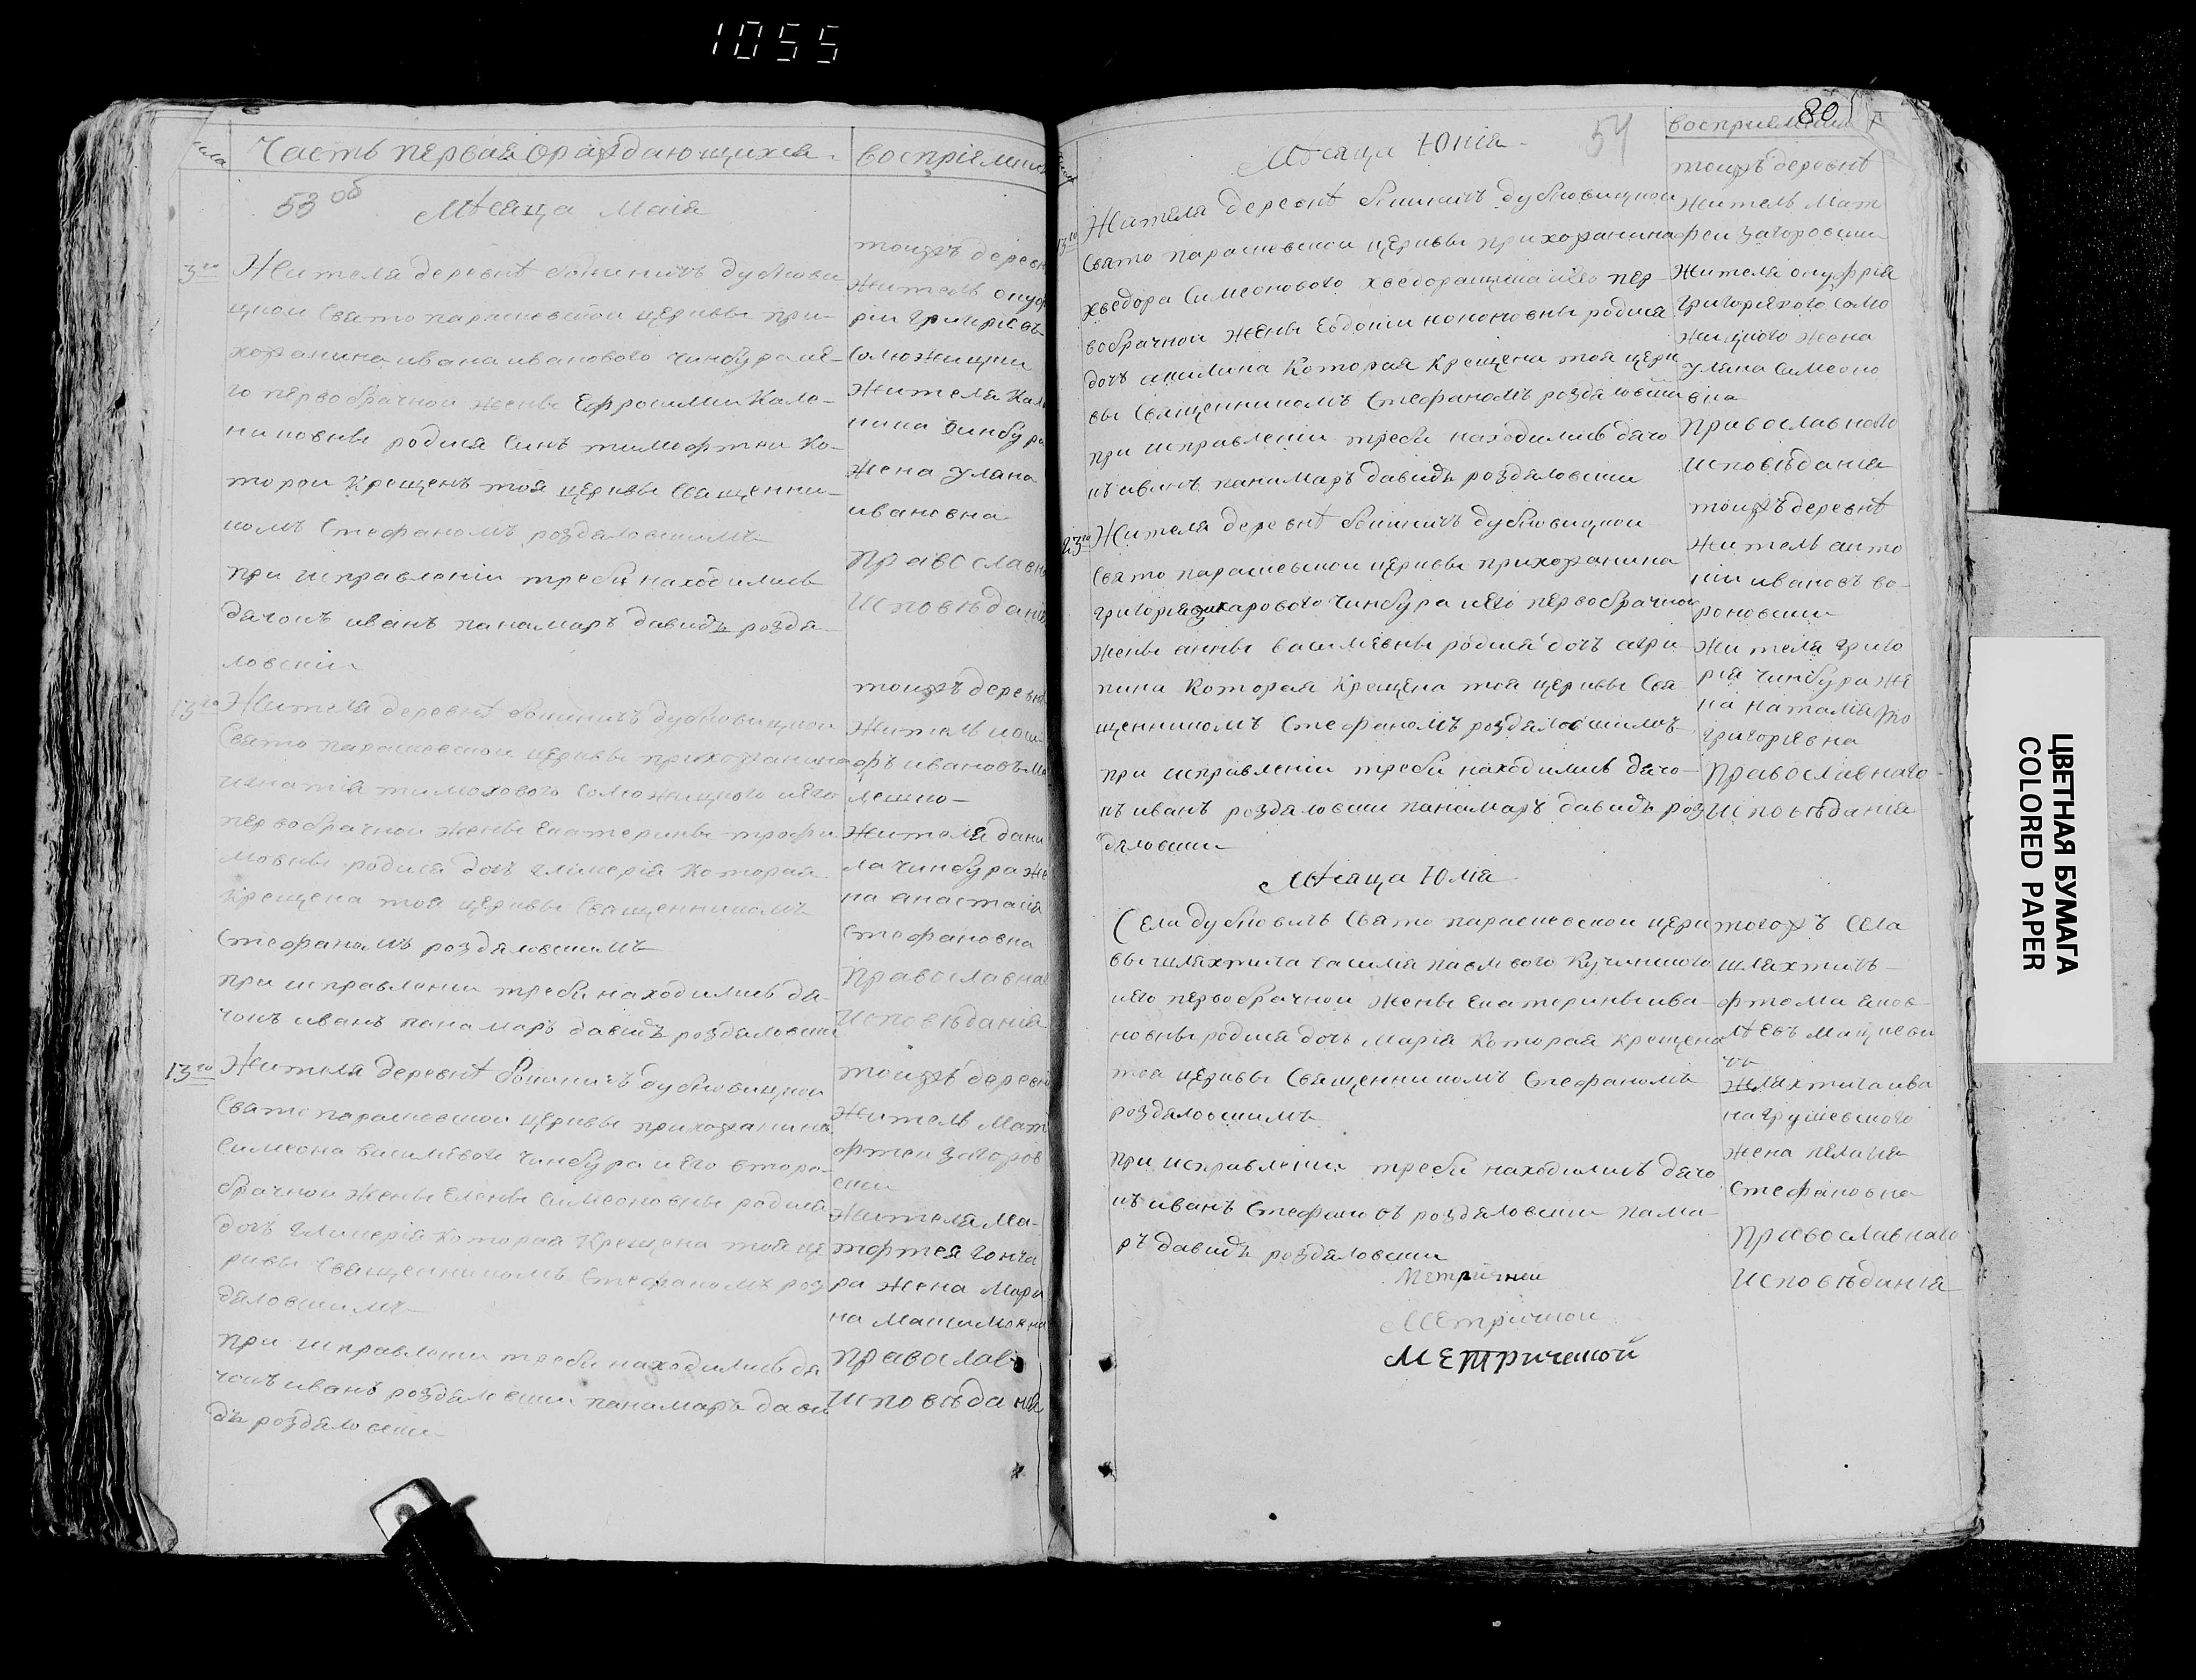 1055
Часть первая ораждающихся
восприемни
53 об
Месяца Маия
3го
Жителя деревнѣ бонничъ дубновицкой
Свято параскевской церквы при-
хожанина ивана иванового чинбура и е-
го первобрачной жены Ефросинии Кало-
никовны родися Синъ тимофтей Ко-
торой Крещенъ тоя церквы Священни-
комъ Стефаномъ роздяловскимъ
при исправленіи требы находились
дячокъ иванъ панамаръ давидъ роздя
ловскіи
тоижъ деревн
Житель онуф
ріи григоріевъ
Солюжицки
Жителя Кал
ника Чинбура
Жена Уляна
ивановна
Православн
Исповѣдани
13го
Жителя деревнѣ бонничъ дубновицкой
Свято параскевской церквы прихожанина
игнатія тимохового Солюжицкого и его
первобрачной жены Екатерины трофи
мовны родися дочъ Гликерія Которая
Крещена тоя церквы Священникомъ
Стефаномъ роздяловскимъ
при исправлении требы находились дя-
чокъ иванъ панамаръ давидъ роздяловски
тоижъ деревнѣ
Житель иоси
фъ ивановъ Ме
лешко
Жителя дани
ла Чинбура же
на анастасія
Стефановна
Православна
Исповѣданія
13го
Жителя деревнѣ бонничъ дубновицкой
Свято параскевской церквы прихожанина
Симеона Василевого Чинбура и его второ-
брачной жены Елены Симеоновны родися
дочъ Гликерія Которая Крещена тоя це
рквы Священникомъ Стефаномъ роз
дяловскимъ
при исправлении требы находились дя
чокъ иванъ роздяловски панамаръ дави
дъ роздяловски
тоижъ деревн
Житель Мат
фтеи Загоров
ски
Жителя Ма-
тфтея Гонча
ра жена Мари
на Максимовна
Православ
Исповѣдания
80
54
Месяца Юнія
восприемники
13го
Жителя деревнѣ бонничъ дубновицкой
Свято параскевской церквы прихожанина
хведора Симеонового хведоращика и его пер-
вобрачной жены Евдокіи кононовны родися
дочъ акилина Которая Крещена тоя церк
вы Священникомъ Стефаномъ роздяловски
при исправленіи требы находились дячо
къ иванъ панамаръ давидъ роздяловски
тоижъ деревнѣ
Житель Мат
феи Загоровски
Жителя онуфрія
Григоріевого Солю
жицкого жена
Уляна Симеоно
вна
Православного
Исповѣданія
23го
Жителя деревнѣ бонничъ дубновицкой
Свято параскевской церквы прихожанина
григорія захарового Чинбура и его первобрачной
жены анны Василіевны родися дочъ агри
пина Которая Крещена тоя церквы Свя
щенникомъ Стефаномъ роздяловскимъ
при исправленіи требы находились дячо-
къ иванъ роздяловски панамаръ давидъ роз
дяловски
тоижъ деревнѣ
Житель анто
ній ивановъ во-
роновски
Жителя григо
рія Чинбура же
на наталія
григоріевна
Православного
Исповѣданія
Месяца Юлія
Села дубновичъ Свято параскевской церк
вы шляхтича василія павлового Кучинского
и его первобрачной жены Екатерины ива-
новны родися дочъ Марія Которая Крещена
тоя церквы Священникомъ Стефаномъ
роздяловскимъ
при исправлении требы находились дячо
къ иванъ Стефановъ роздяловски пама
ръ давидъ роздяловски
тогожъ Села
шляхтичъ
фтома яков-
лѣевъ Мацкеви
чъ
Шляхтича ива
на Грушевского
жена пелагия
Стефановна
Православного
Исповѣданія
Метричнои
Метричнои
Метрической
ЦВЕТНАЯ БУМАГА
COLORED PAPER